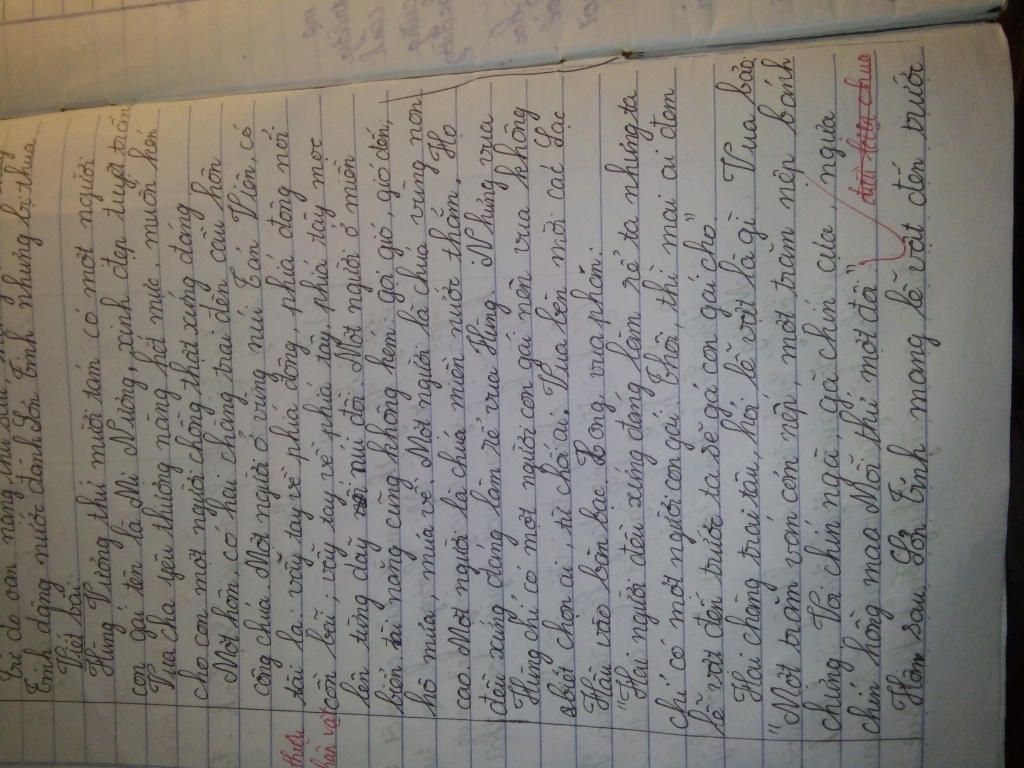 Từ đó oán nặng, thù sâu,
Tinh dâng nước đánh Sơn Tinh nhưng bị thua.
Viết bài
Hùng Vương thứ mười tám có một người
con gái tên là Mị Nương, xinh đẹp tuyệt trần
Vua cha yêu thương nàng hết mực, muốn kén
cho con một người chồng thật xứng đáng
Một hôm, có hai chàng trai đến cầu hôn
công chúa Một người ở vùng núi Tản Viên, có
tài lạ: vẫy tay về phía đông, phía đông nổi
thiếu
hàn vài
cồn bãi; vẫy tay về phía tây, phía tây mọc
lên từng dãy núi đồi. Một người ở miền
biển tài năng cũng không kém: gọi gió, gió đến;
hô mưa, mưa về. Một người là chúa vùng non
cao Một người là chúa miền nước thẳm. Họ
đều xứng đáng làm rể vua Hùng. Nhưng vua
Hùng chỉ có một người con gái nên vua không
biết chọn ai, từ chối ai. Vua bèn mời các Lạc
Hầu vào bàn bạc. Xong vua phán:
"Hai người đều xứng đáng làm rể ta nhưng ta
chỉ có một người con gái. Thôi thì mai ai đem
lễ vật đến trước ta sẽ gả con gái cho"
Hai chàng trai tâu, hỏi lễ vật là gì. Vua bảo:
"Một trăm ván cơm nếp, một trăm nệp bánh
chưng. Voi chín ngà, gà chín cựa, ngựa
chín hồng mao Mỗi thứ một đôi"
Hôm sau. Sơn Tinh mang lễ vật đến trước